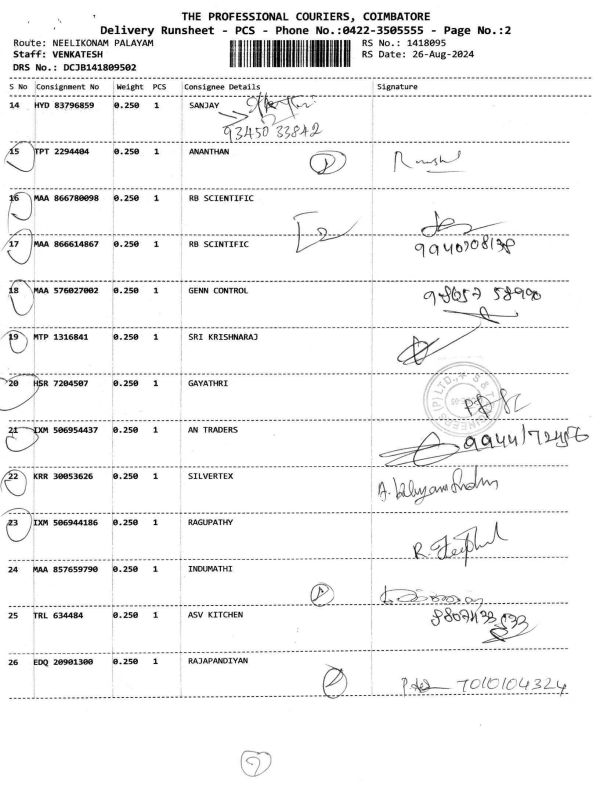 THE PROFESSIONAL COURIERS, COIMBATORE
Delivery Runsheet - PCS - Phone No.:0422-3505555 - Page No.:2
Route: NEELIKONAM PALAYAM RS No.: 1418095
Staff: VENKATESH RS Date: 26-Aug-2024
DRS No.: DCJB141809502
S No Consignment No Weight PCS Consignee Details Signature
14 HYD 83796859 0.250 1 SANJAY
93450 33842
15 TPT 2294404 0.250 1 ANANTHAN
16 MAA 866780098 0.250 1 RB SCIENTIFIC
17 MAA 866614867 0.250 1 RB SCINTIFIC
18 MAA 576027002 0.250 1 GENN CONTROL
19 MTP 1316841 0.250 1 SRI KRISHNARAJ
20 HSR 7204507 0.250 1 GAYATHRI
21 IXM 506954437 0.250 1 AN TRADERS
22 KRR 30053626 0.250 1 SILVERTEX
23 IXM 506944186 0.250 1 RAGUPATHY
24 MAA 857659790 0.250 1 INDUMATHI
25 TRL 634484 0.250 1 ASV KITCHEN
26 EDQ 20901300 0.250 1 RAJAPANDIYAN
7010104324